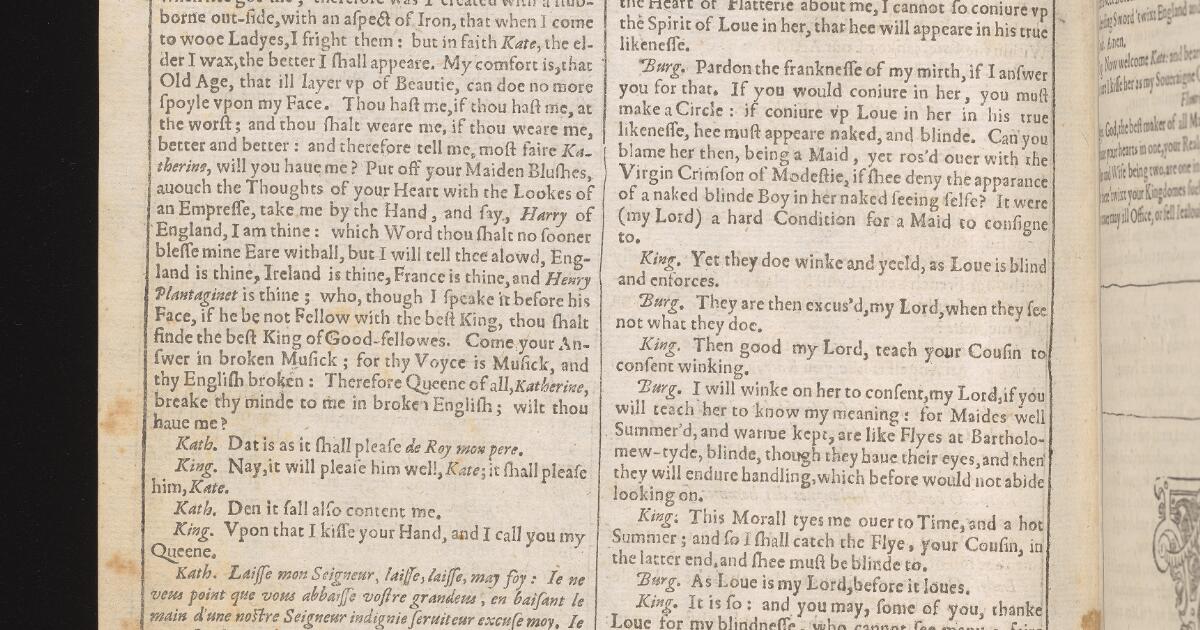 borne out-ſide, with an aſpect of Iron, that when I come
to wooe Ladyes, I fright them: but in faith Kate, the el-
der I wax, the better I ſhall appeare. My comfort is, that
Old Age, that ill layer vp of Beautie, can doe no more
ſpoyle vpon my Face. Thou haſt me, if thou haſt me, at
the worſt; and thou ſhalt weare me, if thou weare me,
better and better: and therefore tell me, moſt faire Ka-
therine, will you haue me? Put off your Maiden Bluſhes,
auouch the Thoughts of your Heart with the Lookes of
an Empreſſe, take me by the Hand, and ſay, Harry of
England, I am thine: which Word thou ſhalt no ſooner
bleſſe mine Eare withall, but I will tell thee alowd, Eng-
land is thine, Ireland is thine, France is thine, and Henry
Plantaginet is thine; who, though I ſpeake it before his
Face, if he be not Fellow with the beſt King, thou ſhalt
finde the beſt King of Good-fellowes. Come your An-
ſwer in broken Muſick; for thy Voyce is Muſick, and
thy Engliſh broken: Therefore Queene of all, Katherine,
breake thy minde to me in broken Engliſh; wilt thou
haue me?
Kath. Dat is as it ſhall pleaſe de Roy mon pere.
King. Nay, it will pleaſe him well, Kate; it ſhall pleaſe
him, Kate.
Kath. Den it ſall alſo content me.
King. Vpon that I kiſſe your Hand, and I call you my
Queene.
Kath. Laiſſe mon Seigneur, laiſſe, laiſſe, may foy: Ie ne
veus point que vous abbaiſſe voſtre grandeus, en baiſant le
main d'une noſtre Seigneur indignie ſeruiteur excuſe moy. Ie
the Heart of Flatterie about me, I cannot ſo coniure vp
the Spirit of Loue in her, that hee will appeare in his true
likeneſſe.
Burg. Pardon the frankneſſe of my mirth, if I anſwer
you for that. If you would coniure in her, you muſt
make a Circle: if coniure vp Loue in her in his true
likeneſſe, hee muſt appeare naked, and blinde. Can you
blame her then, being a Maid, yet ros'd ouer with the
Virgin Crimſon of Modeſtie, if ſhee deny the apparance
of a naked blinde Boy in her naked ſeeing ſelfe? It were
(my Lord) a hard Condition for a Maid to conſigne
to.
King. Yet they doe winke and yeeld, as Loue is blind
and enforces.
Burg. They are then excus'd, my Lord, when they ſee
not what they doe.
King. Then good my Lord, teach your Couſin to
conſent winking.
Burg. I will winke on her to conſent, my Lord, if you
will teach her to know my meaning: for Maides well
Summer'd, and warme kept, are like Flyes at Bartholo-
mew-tyde, blinde, though they haue their eyes, and then
they will endure handling, which before would not abide
looking on.
King. This Morall tyes me ouer to Time, and a hot
Summer; and ſo I ſhall catch the Flye, your Couſin, in
the latter end, and ſhee muſt be blinde to.
Burg. As Loue is my Lord, before it loues.
King. It is ſo: and you may, ſome of you, thanke
Loue for my blindneſſe, who cannot ſee many a faire
Sword 'twixt England
Now welcome Kate: and
her as my Soueraigne
God, the beſt maker of all
your hearts in one, your
Wife being two, are one
your Kingdomes
may ill Office, or fell